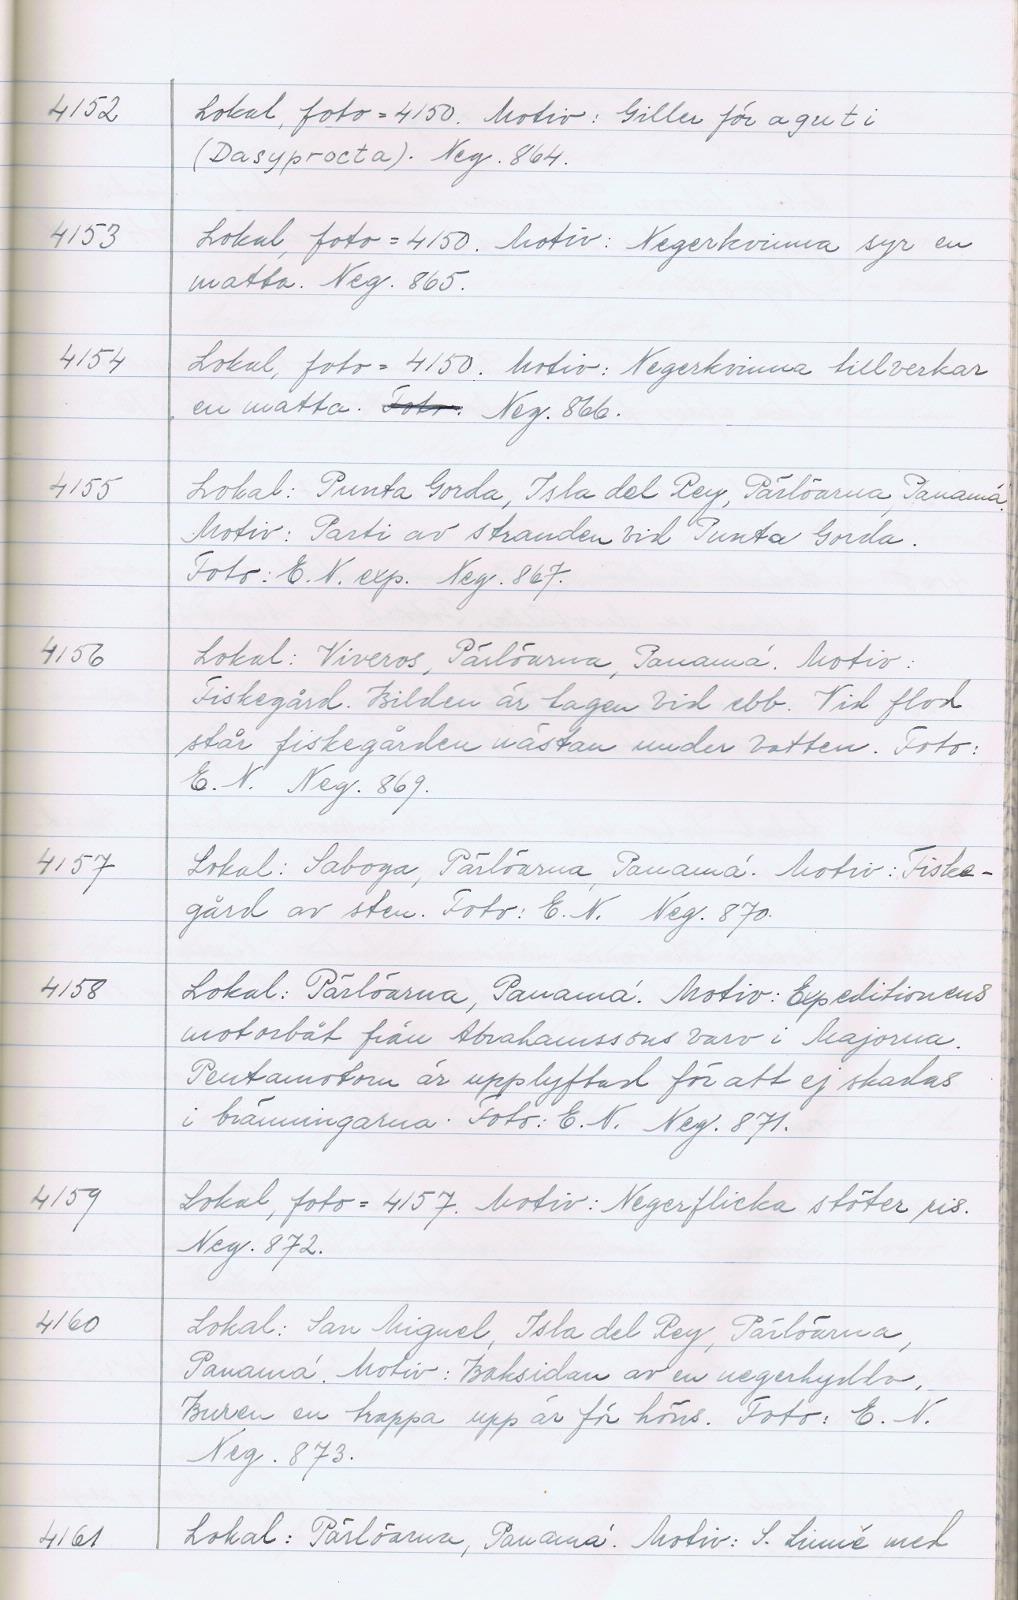 4152 Lokal, foto = 4150. Motiv: Giller för aguti
(Dasyprocta). Neg. 864.
4153 Lokal, foto = 4150. Motiv: Negerkvinna syr en
matta. Neg. 865.
4154 Lokal, foto = 4150. Motiv: Negerkvinna tillverkar
en matta. Foto: Neg. 866.
4155 Lokal: Punta Gorda, Isla del Rey, Pärlöarna, Panamá.
Motiv: Parti av stranden vid Punta Gorda.
Foto: E.N. exp. Neg. 867.
4156 Lokal: Viveros, Pärlöarna, Panamá. Motiv:
Fiskegård. Bilden är tagen vid ebb. Vid flod
står fiskegården nästan under vatten. Foto:
E.N. Neg. 869.
4157 Lokal: Saboga, Pärlöarna, Panamá. Motiv: Fiske-
gård av sten. Foto: E.N. Neg. 870.
4158 Lokal: Pärlöarna, Panamá. Motiv: Expeditionens
motorbåt från Abrahamssons varv i Majorna.
Pentamotorn är upplyftad för att ej skadas
i bränningarna. Foto: E.N. Neg. 871.
4159 Lokal, foto = 4157. Motiv: Negerflicka stöter ris.
Neg. 872.
4160 Lokal: San Miguel, Isla del Rey, Pärlöarna,
Panamá. Motiv: Baksidan av en negerhydda.
Buren en trappa upp är för höns. Foto: E.N.
Neg. 873.
4161 Lokal: Pärlöarna, Panamá. Motiv: S. Linné med